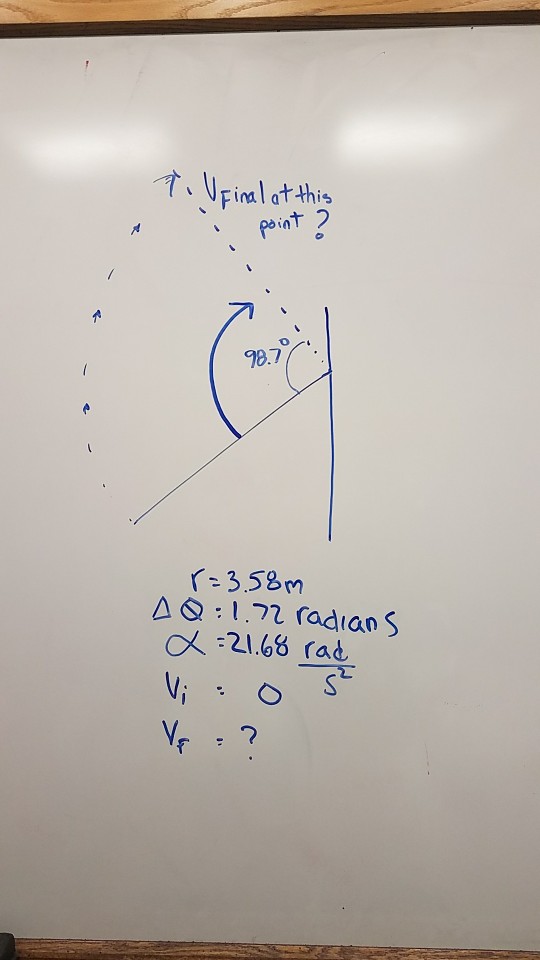 V Final at this
point ?
98.7°
r = 3.58m
Δ θ = 1.72 radians
α = 21.68 rad/s²
Vi = 0
VF = ?